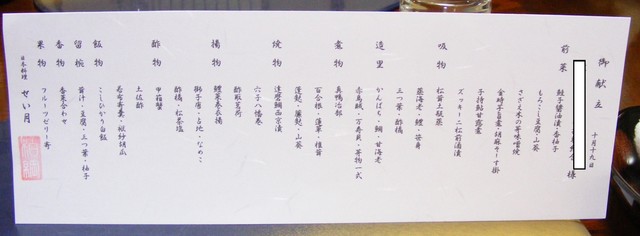 御献立
十月十九日
様
前菜
鮭子醤油漬・香柚子
もろこし豆腐・山葵
さざえ木の芽味噌焼
金時芋旨煮・胡麻クリーム掛
子持鮎甘露煮
ズッキーニ松前酒漬
吸物
松茸土瓶蒸
蒸海老・鱧・笹身
三つ葉・酢橘
造里
かんぱち・鯛・甘海老
赤鳥賊・万寿貝・芽物一式
煮物
真鴨治部
百合根・蓮草・椎茸
蓮麩・簾麩・山葵
焼物
連磨鯛西京漬
六子八幡巻
酢取茗荷
揚物
鱧菜巻衣揚
獅子唐・占地・なめこ
酢橘・松茶塩
酢物
甲箱蟹
土佐酢
飯物
こしひかり白飯
留椀
貝汁・豆腐・三つ葉・柚子
香物
香菜合わせ
果物
フルーツゼリー寄
日本料理 せい月